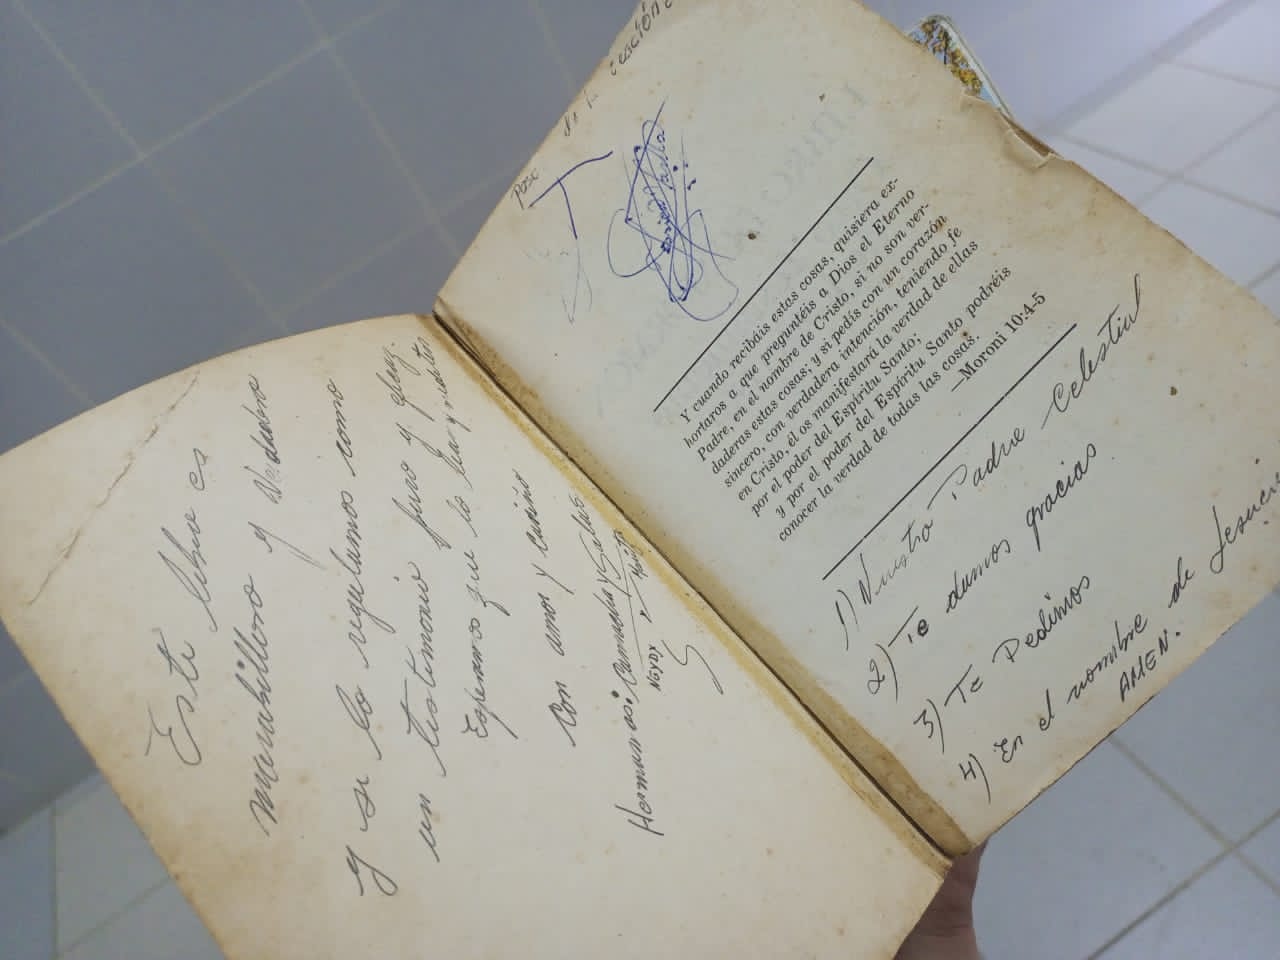 Este libro es
maravilloso y
y se lo regalamos como
un testimonio puro y
Esperamos que lo lean y mediten
Con amor y cariño
Hermanas: y Salas
Y cuando recibáis estas cosas, quisiera ex-
hortaros a que preguntéis a Dios el Eterno
Padre, en el nombre de Cristo, si no son ver-
daderas estas cosas; y si pedís con un corazón
sincero, con verdadera intención, teniendo fe
en Cristo, él os manifestará la verdad de ellas
por el poder del Espíritu Santo;
y por el poder del Espíritu Santo podréis
conocer la verdad de todas las cosas.
—Moroni 10:4-5
1) Nuestro Padre Celestial
2) Te damos gracias
3) Te Pedimos
4) En el nombre de Jesucri
AMEN.